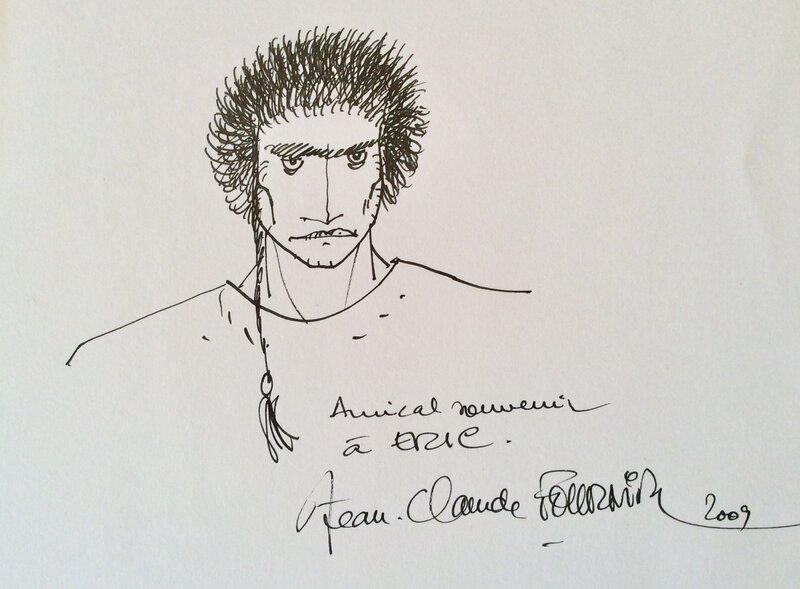 Amical souvenir
à ERIC.
Jean-Claude FOURNIER 2009